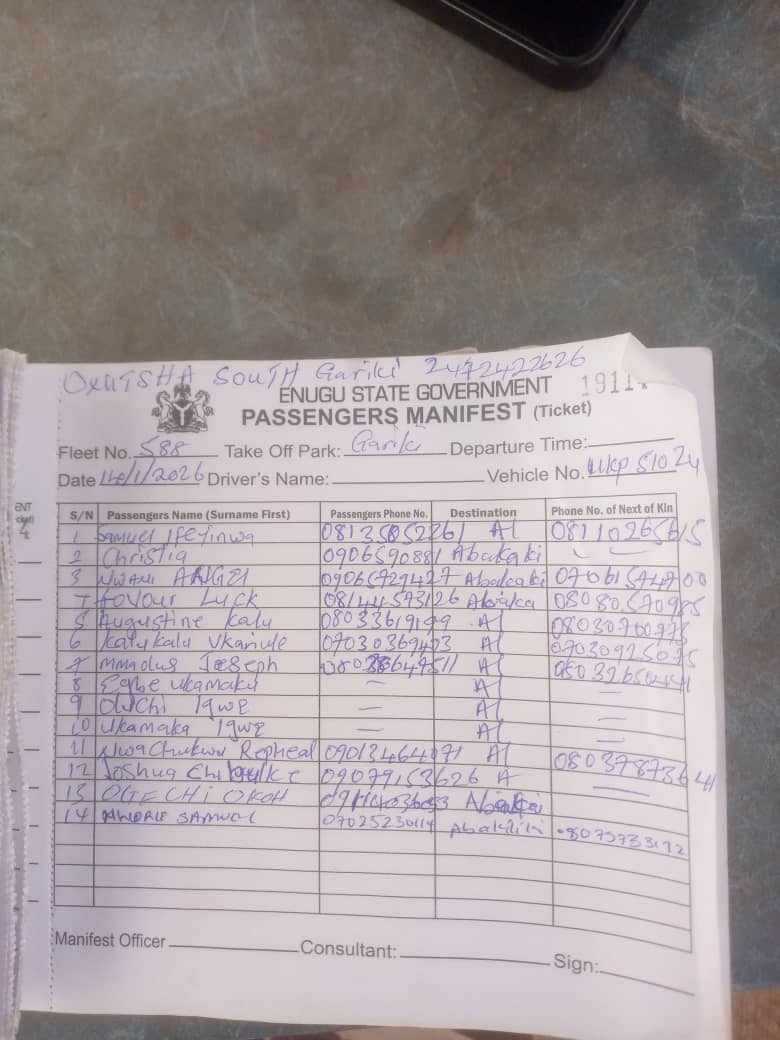 ONITSHA SOUTH Gariki 2472422626
ENUGU STATE GOVERNMENT 1911
PASSENGERS MANIFEST (Ticket)
Fleet No. 588 Take Off Park: Gariki Departure Time:
Date 14/1/2026 Driver's Name: Vehicle No. UKP 510 ZY
S/N Passengers Name (Surname First) Passengers Phone No. Destination Phone No. of Next of Kin
1 Samuel Ifeyinwa 08135052261 AI 08110265615
2 Christia 0906590881 Abakaki
3 NWANI 09065729427 Abakaki
7 Favour Luck 08144573126 Abaka
5 Augustine Kalu 08033619199 AI
6 Kalu Kalu 07030369473 AI 07030925075
7 Joseph AI
8 Egbe Ukamaka — AI —
9 OLUCHI Igwe — AI —
10 Ukamaka Igwe — AI —
11 Nwachukwu Repheal 09013464071 AI 08037873641
12 Joshua 09079153626 A —
13 OGECHI OKOH
14 NWORIE SAMUEL 07025230114 Abakiliki
Manifest Officer Consultant: Sign: